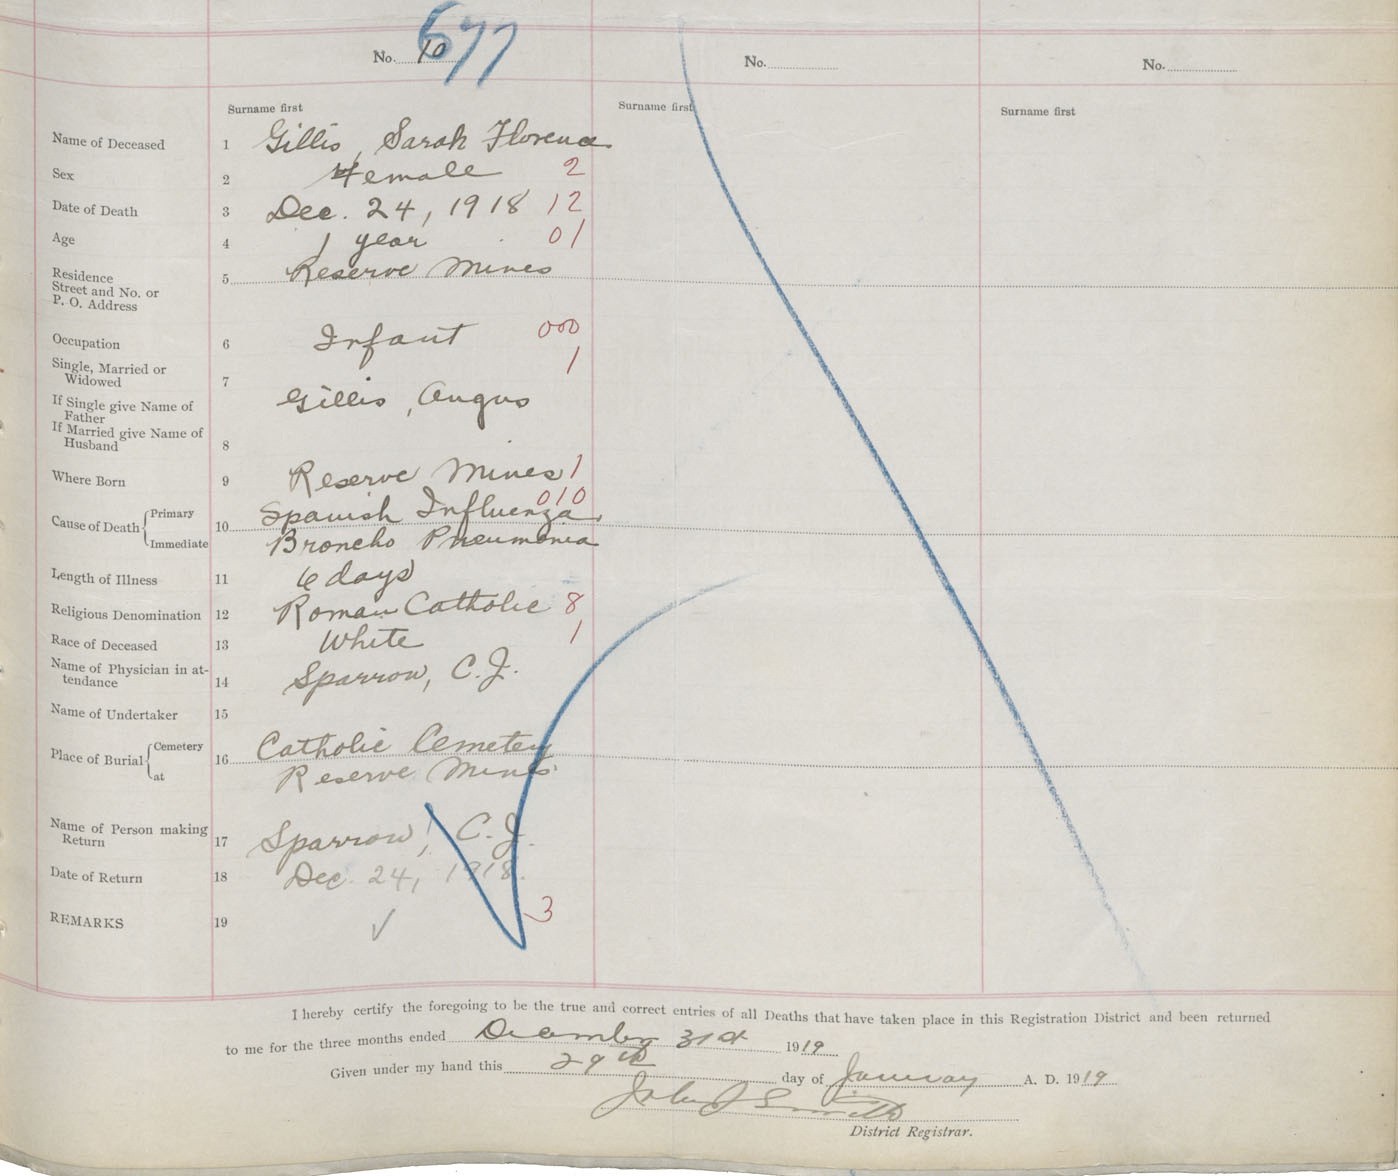 677
No. 10 No. No.
Surname first Surname first Surname first
Name of Deceased 1 Gillis, Sarah Florence
Sex 2 Female 2
Date of Death 3 Dec. 24, 1918 12
Age 4 1 year 01
Residence
Street and No. or
P. O. Address 5 Reserve Mines
Occupation 6 Infant 000
Single, Married or
Widowed 7 1
If Single give Name of
Father Gillis, Angus
If Married give Name of
Husband 8
Where Born 9 Reserve Mines 1
010
Cause of Death 10
Primary Spanish Influenza,
Immediate Broncho Pneumonia
Length of Illness 11 6 days
Religious Denomination 12 Roman Catholic 8
Race of Deceased 13 White 1
Name of Physician in at-
tendance 14 Sparrow, C. J.
Name of Undertaker 15
Place of Burial 16
Cemetery Catholic Cemetery
at Reserve Mines.
Name of Person making
Return 17 Sparrow, C. J.
Date of Return 18 Dec. 24, 1918.
REMARKS 19 3
I hereby certify the foregoing to be the true and correct entries of all Deaths that have taken place in this Registration District and been returned
to me for the three months ended December 31st 1919
Given under my hand this 29th day of January A. D. 1919
John J Smith
District Registrar.